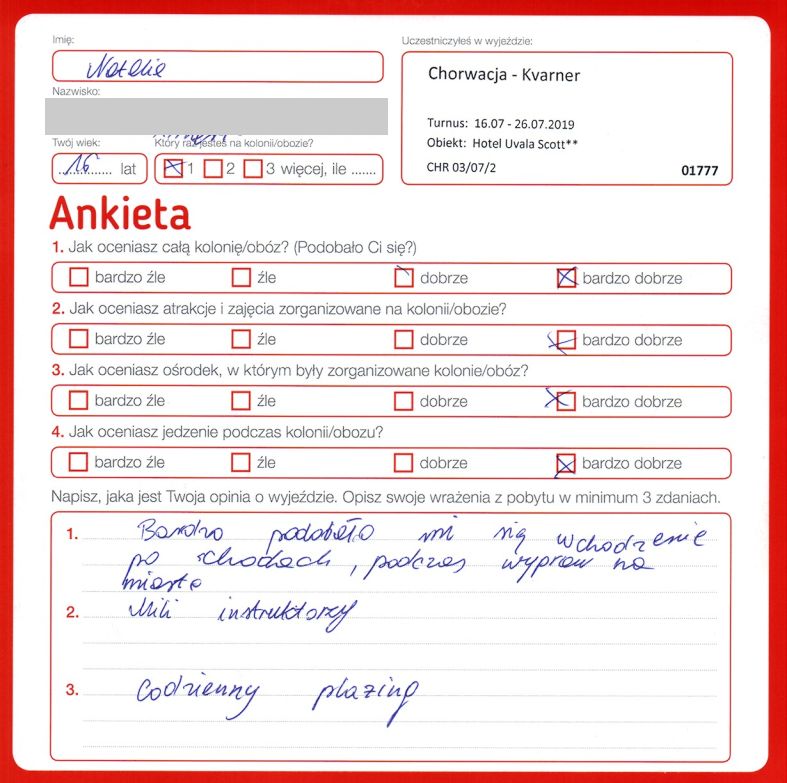 Imię:
Natalia
Nazwisko:
Twój wiek:
16 lat
Który raz jesteś na kolonii/obozie?
1 2 3 więcej, ile .......
Uczestniczyłeś w wyjeździe:
Chorwacja - Kvarner
Turnus: 16.07 - 26.07.2019
Obiekt: Hotel Uvala Scott**
CHR 03/07/2 01777
Ankieta
1. Jak oceniasz całą kolonię/obóz? (Podobało Ci się?)
bardzo źle źle dobrze bardzo dobrze
2. Jak oceniasz atrakcje i zajęcia zorganizowane na kolonii/obozie?
bardzo źle źle dobrze bardzo dobrze
3. Jak oceniasz ośrodek, w którym były zorganizowane kolonie/obóz?
bardzo źle źle dobrze bardzo dobrze
4. Jak oceniasz jedzenie podczas kolonii/obozu?
bardzo źle źle dobrze bardzo dobrze
Napisz, jaka jest Twoja opinia o wyjeździe. Opisz swoje wrażenia z pobytu w minimum 3 zdaniach.
1. Bardzo podobało mi się wchodzenie
po schodach, podczas wypraw na
miasto
2. Mili instruktorzy
3. Codzienny plażing